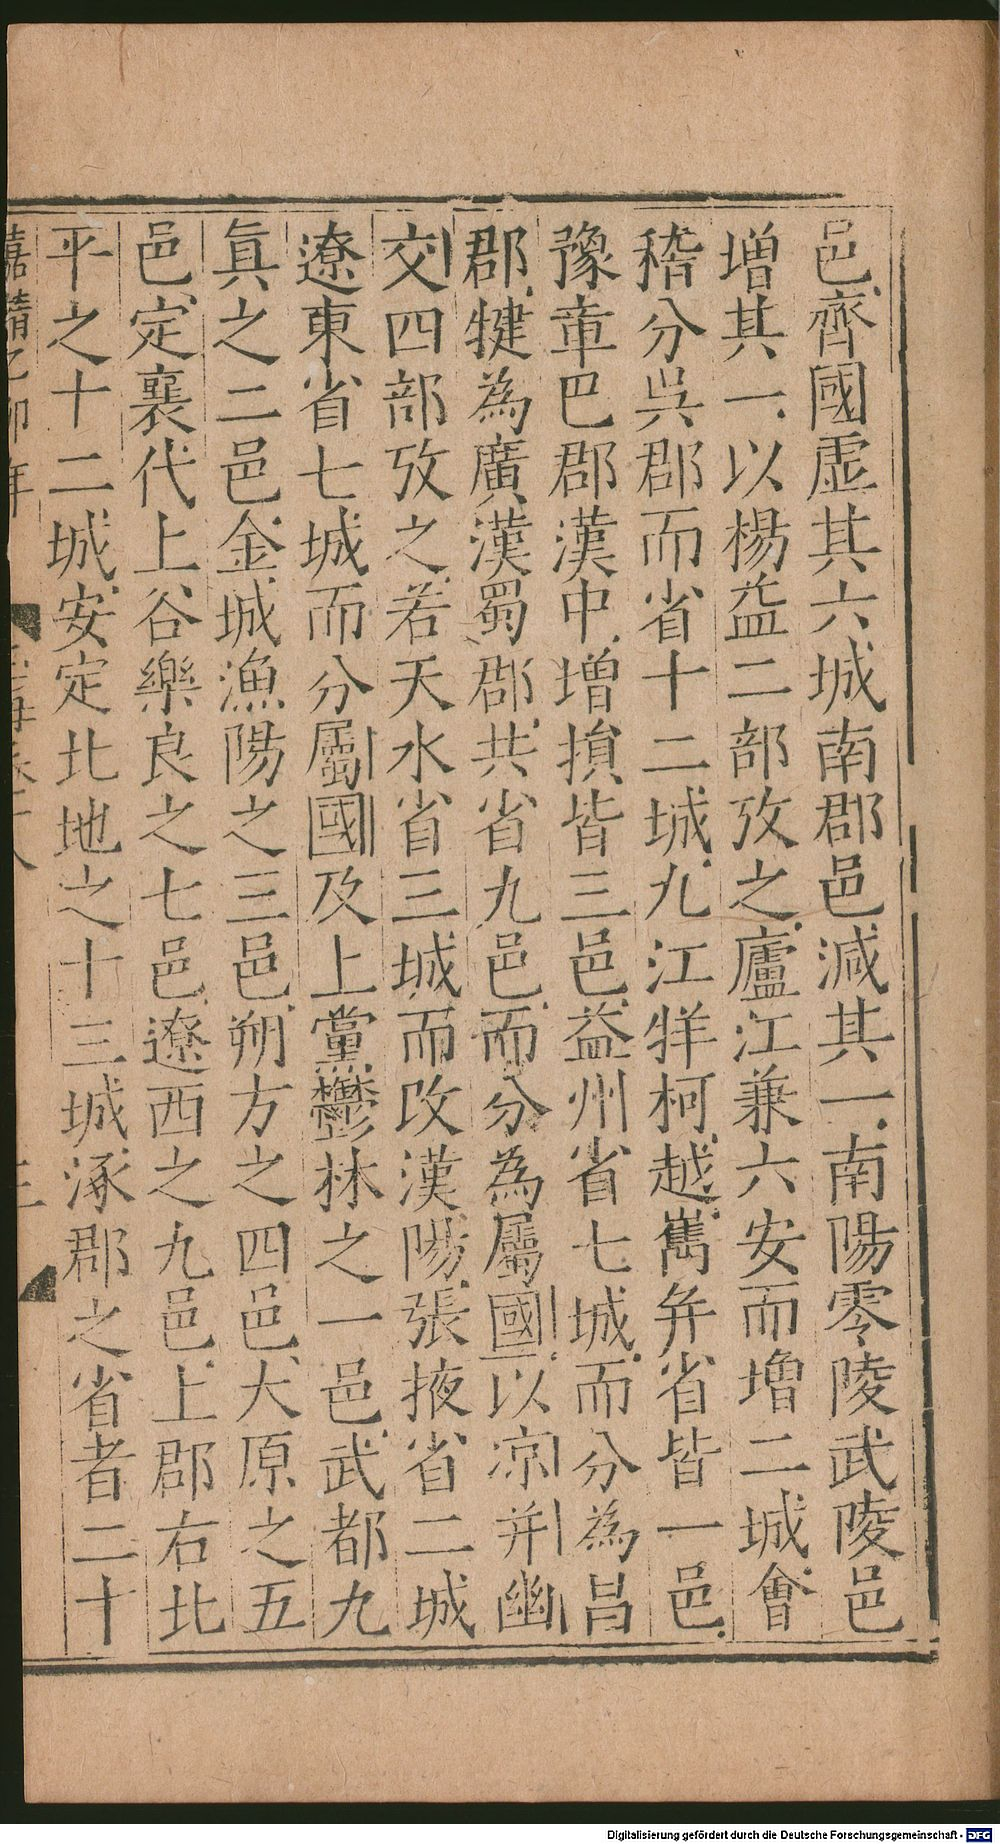 邑齊國虛其六城南郡邑減其一南陽零陵武陵邑
増其一以楊益二部攷之廬江兼六安而増二城會
稽分吳郡而省十二城九江牂柯越嶲并省皆一邑
豫章巴郡漢中増損皆三邑益州省七城而分為昌
郡犍為廣漢蜀郡共省九邑而分為屬國以凉并幽
交四部攷之若天水省三城而改漢陽張掖省二城
遼東省七城而分屬國及上黨鬱林之一邑武都九
眞之二邑金城漁陽之三邑朔方之四邑大原之五
邑定襄代上谷樂良之七邑遼西之九邑上郡右北
平之十二城安定北地之十三城涿郡之省者二十
嘉靖乙卯年
三
Digitalisierung gefördert durch die Deutsche Forschungsgemeinschaft - DFG